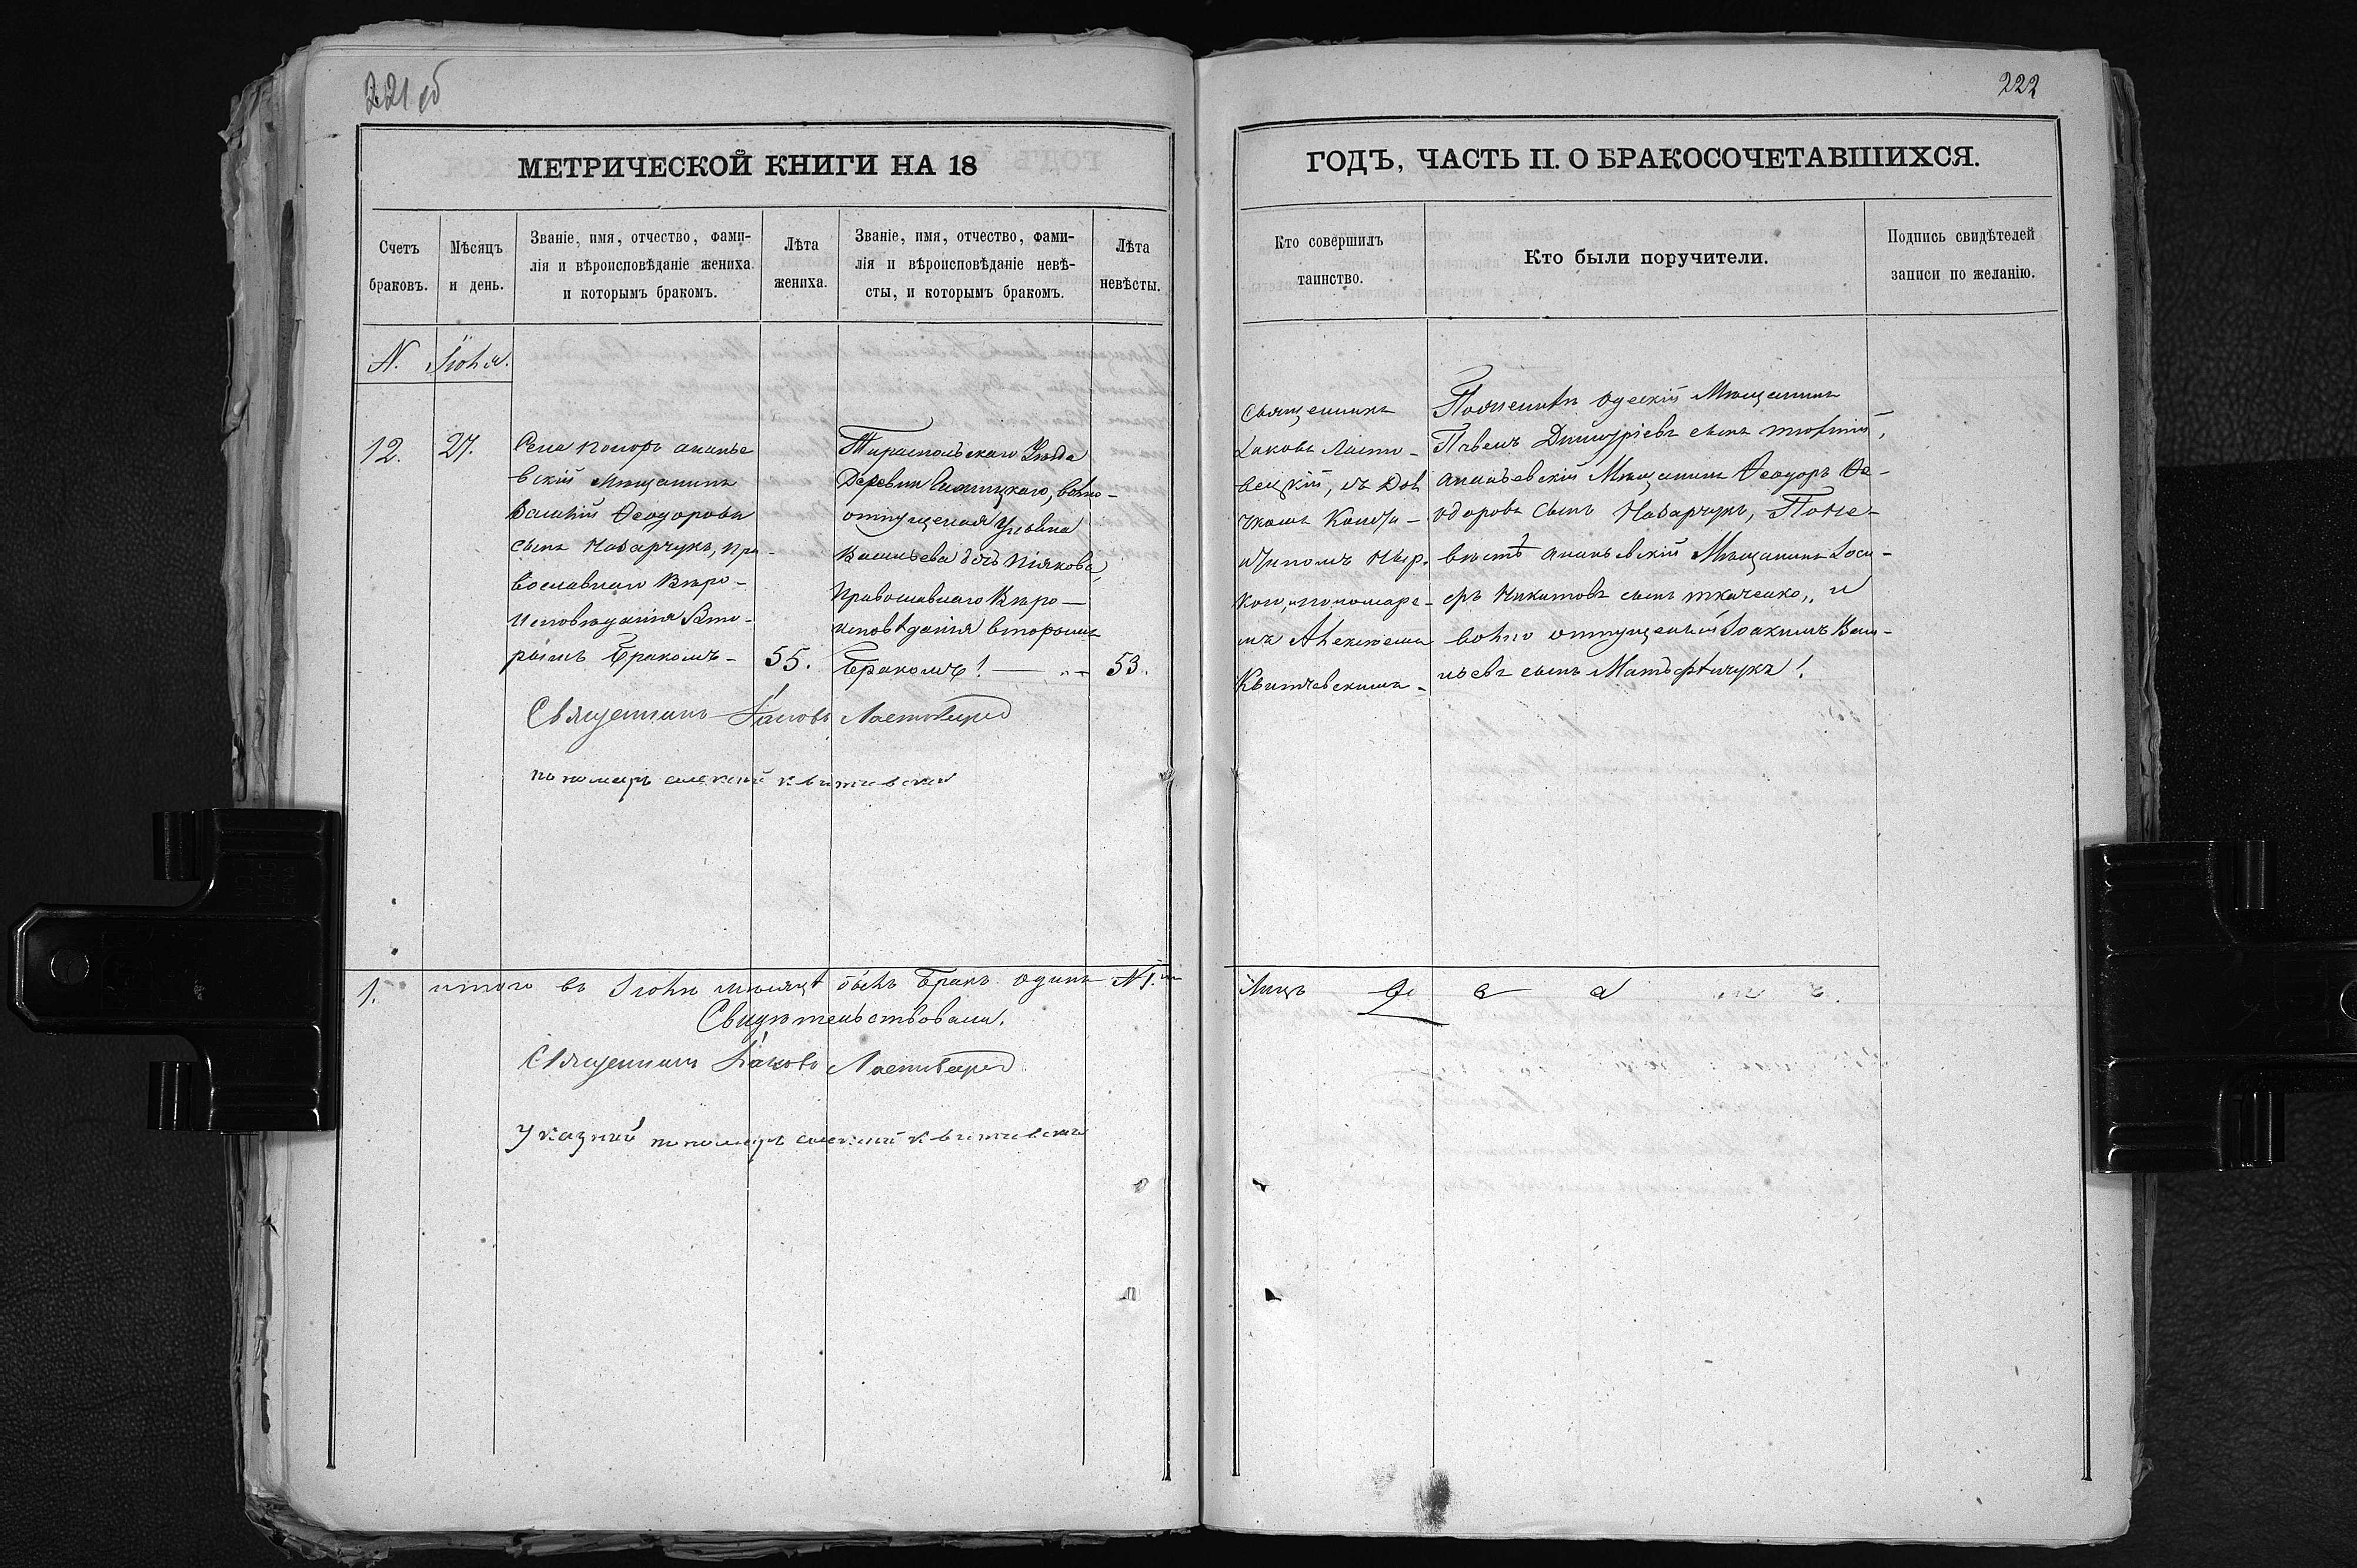 221 об
МЕТРИЧЕСКОЙ КНИГИ НА 18
Счетъ браковъ.
Мѣсяцъ и день.
Званіе, имя, отчество, фами-
лія и вѣроисповѣданіе жениха
и которымъ бракомъ.
Лѣта жениха.
Званіе, имя, отчество, фами-
лія и вѣроисповѣданіе невѣ-
сты, и которымъ бракомъ.
Лѣта невѣсты.
N. Іюня.
12. 27.
Села ананье
вскій мѣщанинъ
Василій Ѳеодоровъ
сынъ Назарчукъ, пра-
вославнаго вѣро-
исповѣданія вто-
рымъ бракомъ - 55.
Тираспольскаго уѣзда
Деревни вольно-
отпущеная
Васильева дочь
православнаго вѣро-
исповѣданія вторымъ
бракомъ! 53.
Священникъ Іаковъ
пономарь алексій квитчевскій
1. итого въ Іюнѣ мѣсяцѣ былъ бракъ одинъ N 1.
Свидѣтельствовали.
Священникъ Іаковъ
Указный пономарь алексій квитчевскій
222
ГОДЪ, ЧАСТЬ II. О БРАКОСОЧЕТАВШИХСЯ.
Кто совершилъ
таинство.
Кто были поручители.
Подпись свидѣтелей
записи по желанію.
Священникъ
Іаковъ
съ
пономаре-
мъ Алексѣемъ
Квитчевскимъ -
По женихѣ одескій Мѣщанинъ
Павелъ Димитріевъ сынъ
ананьевскій Мѣщанинъ Ѳеодоръ Ѳе-
одоровъ сынъ Назарчукъ, По не-
вѣстѣ ананьевскій Мѣщанинъ Іоси-
фъ Никитовъ сынъ ткаченко, и
вольно отпущеный Іоакимъ Васи-
льевъ сынъ
лицъ два